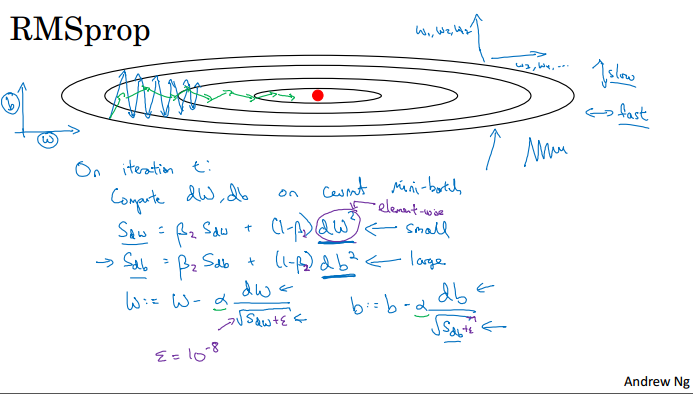 RMSprop
w₁, w₂, w₂
w₃, w₄, ...
slow
fast
b
w
On iteration t:
Compute dW, db on current mini-batch
element-wise
S_dw = β₂ S_dw + (1-β₂) dW² ← small
→ S_db = β₂ S_db + (1-β₂) db² ← large
W := W - α dW/√(S_dw+ε) ← b := b - α db/√(S_db+ε) ←
ε = 10⁻⁸
Andrew Ng